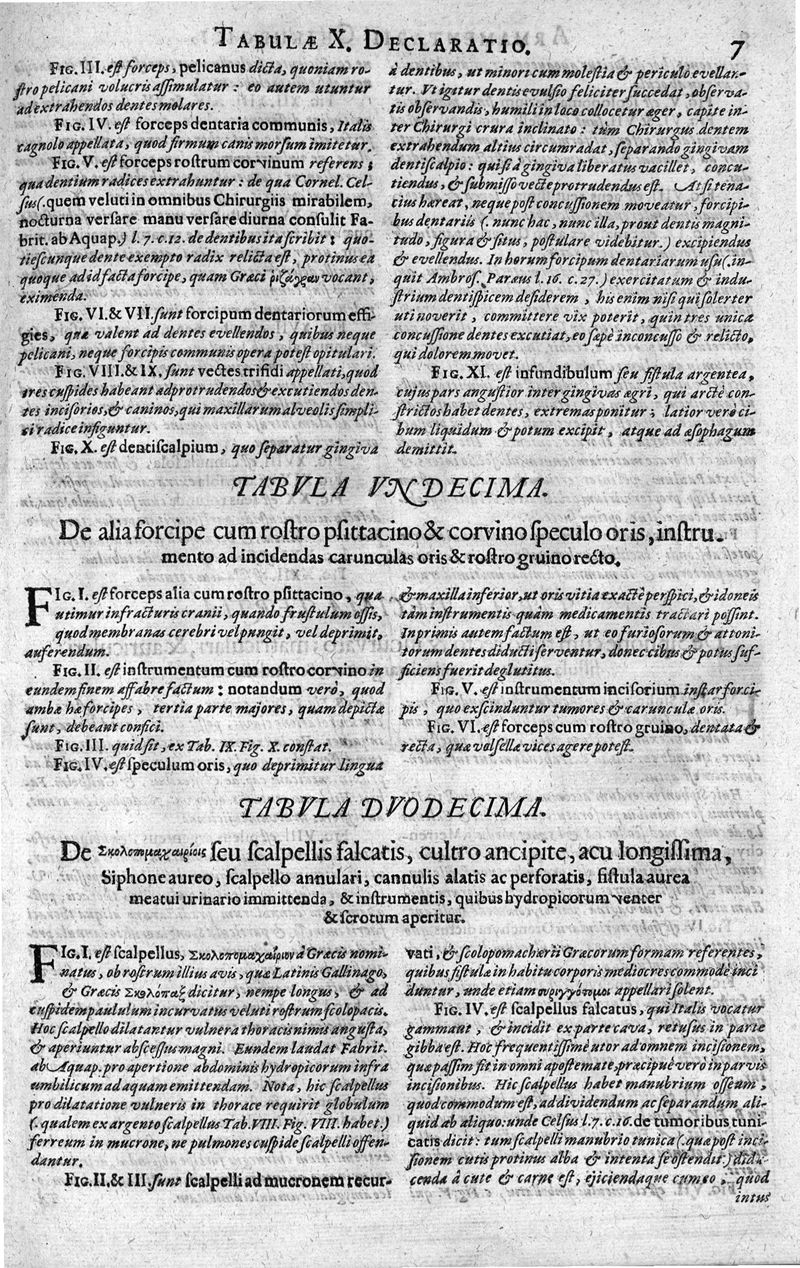 TABULÆ X. DECLARATIO. 7
FIG. III. est forceps, pelicanus dicta, quoniam ro-
stro pelicani volucris assimulatur: eo autem utuntur
ad extrahendos dentes molares.
FIG. IV. est forceps dentaria communis, Italis
cagnolo appellata, quod firmum canis morsum imitetur.
FIG. V. est forceps rostrum corvinum referens;
qua dentium radices extrahuntur: de qua Cornel. Cel-
sus (quem veluti in omnibus Chirurgiis mirabilem,
nocturna versare manu versare diurna consulit Fa-
brit. ab Aquap.) l. 7. c. 12. de dentibus ita scribit: quo-
tiescunque dente exempto radix relicta est, protinus ea
quoque ad id facta forcipe, quam Græci ῥιζάγραν vocant,
eximenda.
FIG. VI. & VII. sunt forcipum dentariorum effi-
gies, quæ valent ad dentes evellendos, quibus neque
pelicani, neque forcipis communis opera potest opitulari.
FIG. VIII. & IX. sunt vectes trifidi appellati, quod
tres cuspides habeant ad protrudendos & excutiendos den-
tes incisorios, & caninos, qui maxillarum alveolis simpli-
ci radice infiguntur.
FIG. X. est dentiscalpium, quo separatur gingiva
à dentibus, ut minori cum molestia & periculo evellan-
tur. Ut igitur dentis evulsio feliciter succedat, observa-
tis observandis, humili in loco collocetur æger, capite in-
ter Chirurgi crura inclinato: tùm Chirurgus dentem
extrahendum altius circumradat, separando gingivam
dentiscalpio: qui si à gingiva liberatus vacillet, concu-
tiendus, & submisso vecte protrudendus est. At si tena-
cius hæreat, neque post concussionem moveatur, forcipi-
bus dentariis (nunc hac, nunc illa, prout dentis magni-
tudo, figura & situs, postulare videbitur.) excipiendus
& evellendus. In horum forcipum dentariarum usu (in-
quit Ambros. Paræus l. 16. c. 27.) exercitatum & indu-
strium dentispicem desiderem, his enim nisi qui solerter
uti noverit, committere vix poterit, quin tres unica
concussione dentes excutiat, eo sæpè inconcusso & relicto,
qui dolorem movet.
FIG. XI. est infundibulum seu fistula argentea,
cujus pars angustior inter gingivas ægri, qui arctè con-
strictos habet dentes, extrema ponitur; latior vero ci-
bum liquidum & potum excipit, atque ad æsophagum
demittit.
TABULA UNDECIMA.
De alia forcipe cum rostro psittacino & corvino speculo oris, instru-
mento ad incidendas carunculas oris & rostro gruino recto.
FIG. I. est forceps alia cum rostro psittacino, qua
utimur in fracturis cranii, quando frustulum ossis,
quod membranas cerebri vel pungit, vel deprimit,
auferendum.
FIG. II. est instrumentum cum rostro corvino in
eundem finem affabre factum: notandum verò, quod
ambæ hæ forcipes, tertia parte majores, quam depictæ
sunt, debeant confici.
FIG. III. quid sit, ex Tab. IX. Fig. X. constat.
FIG. IV. est speculum oris, quo deprimitur lingua
& maxilla inferior, ut oris vitia exactè perspici, & idoneis
tàm instrumentis quàm medicamentis tractari possint.
Inprimis autem factum est, ut eo furiosorum & attoni-
torum dentes diducti serventur, donec cibus & potus suf-
ficiens fuerit deglutitus.
FIG. V. est instrumentum incisorium instar forci-
pis, quo exscinduntur tumores & carunculæ oris.
FIG. VI. est forceps cum rostro gruino, dentata &
recta, quæ volsellæ vices agere potest.
TABULA DUODECIMA.
De Σκολοπομαχαιρίοις seu scalpellis falcatis, cultro ancipite, acu longissima,
Siphone aureo, scalpello annulari, cannulis alatis ac perforatis, fistula aurea
meatui urinario immittenda, & instrumentis, quibus hydropicorum venter
& scrotum aperitur.
FIG. I. est scalpellus, Σκολοπομαχαίριον à Græcis nomi-
natus, ob rostrum illius avis, quæ Latinis Gallinago,
& Græcis Σκολόπαξ dicitur, nempe longus, & ad
cuspidem paululum incurvatus veluti rostrum scolopacis.
Hoc scalpello dilatantur vulnera thoracis nimis angusta,
& aperiuntur abscessus magni. Eundem laudat Fabrit.
ab Aquap. pro apertione abdominis hydropicorum infra
umbilicum ad aquam emittendam. Nota, hic scalpellus
pro dilatatione vulneris in thorace requirit globulum
(qualem ex argento scalpellus Tab. VIII. Fig. VIII. habet.)
ferreum in mucrone, ne pulmones cuspide scalpelli offen-
dantur.
FIG. II. & III. sunt scalpelli ad mucronem recur-
vati, & scolopomachærii Græcorum formam referentes,
quibus fistulæ in habitu corporis mediocres commodè inci
duntur, unde etiam συριγγότομοι appellari solent.
FIG. IV. est scalpellus falcatus, qui Italis vocatur
gammaut, & incidit ex parte cava, retusus in parte
gibba est. Hoc frequentissimè utor ad omnem incisionem,
quæ passim fit in omni apostemate, præcipuè verò in parvis
incisionibus. Hic scalpellus habet manubrium osseum,
quod commodum est, ad dividendum ac separandum ali-
quid ab aliquo: unde Celsus l. 7. c. 16. de tumoribus tuni-
catis dicit: tum scalpelli manubrio tunica (quæ post inci-
sionem cutis protinus alba & intenta se ostendit) didu-
cenda à cute & carne est, ejiciendaque cum eo, quod
intus